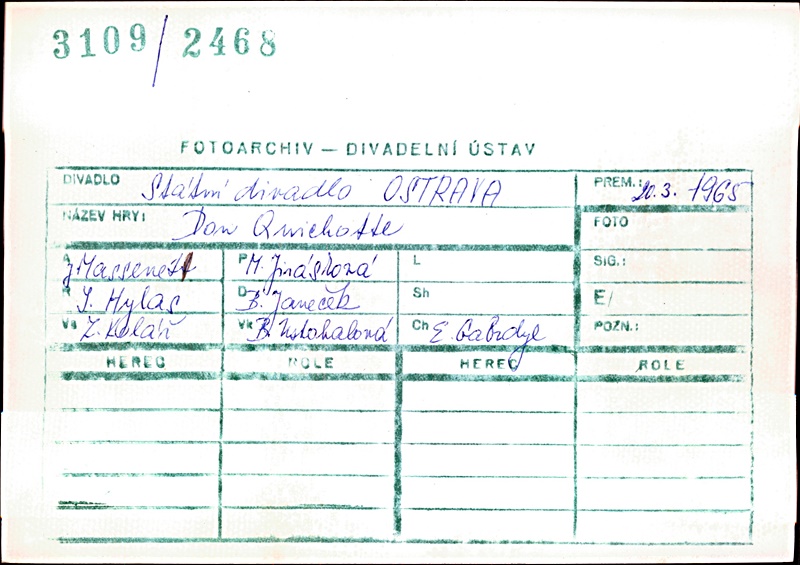 3109/2468
FOTOARCHIV — DIVADELNÍ ÚSTAV
DIVADLO Státní divadlo OSTRAVA PREM.: 20.3. 1965
NÁZEV HRY: Don Quichotte FOTO
A J Massenet P M. Jirásková L SIG.:
R I. Hylas D B. Janeček Sh E/
Vs Z. Kolář Vk B. Ch E. Gabzdyl POZN.:
HEREC ROLE HEREC ROLE